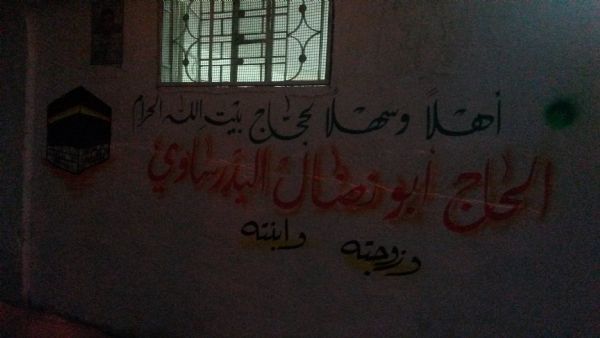 أهلاً وسهلاً بحجاج بيت الله الحرام
الحاج أبو نضال البدرساوي
وزوجته وابنته